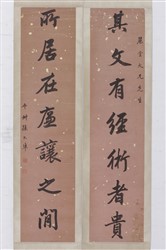 其文有經術者貴
所居在廉讓之閒